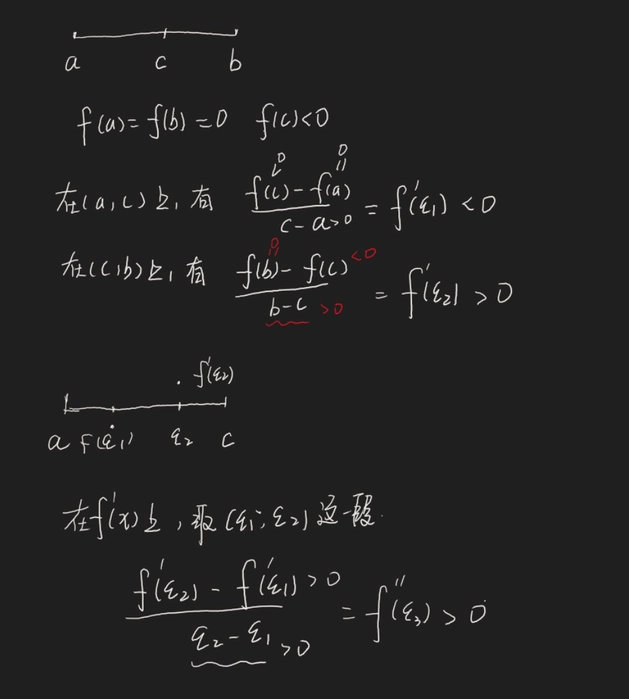 a c b
f(a)=f(b)=0 f(c)<0
在(a,c)上,有 f(c)-f(a) / c-a>0 = f'(ξ₁)<0
在(c,b)上,有 f(b)-f(c)<0 / b-c>0 = f'(ξ₂)>0
. f'(ξ₂)
a f(ξ₁) ξ₂ c
在f'(x)上,取(ξ₁,ξ₂)这一段.
f'(ξ₂)-f'(ξ₁)>0 / ξ₂-ξ₁>0 = f''(ξ₃)>0